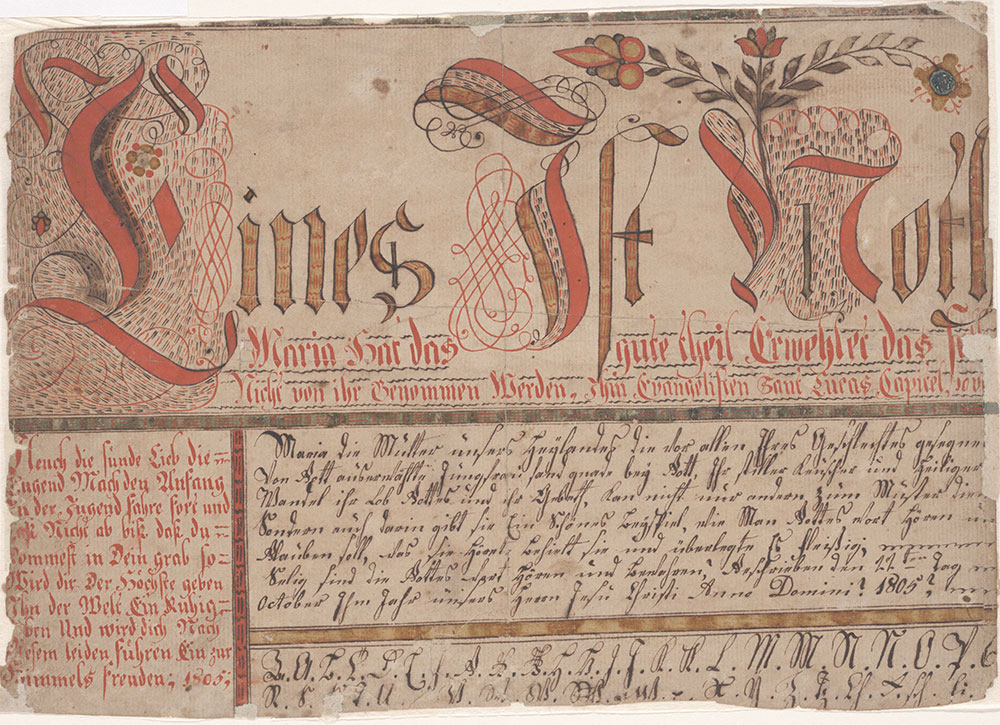 Eines Ist Noth
Maria Hat das gute theil Erwehlet das
Nicht von ihr Genommen Werden. Ihm Evangelisten Sant Lucas Capitel 10
fleuch die sünde Lieb die
tugend Mach den Anfang
in der Jugend fahre fort und
laß Nicht ab biß daß du
kommest in Dein grab so
Wird dir Der Hochste geben
Ihn der Welt Ein Ruhig
leben Und wird dich Nach
diesem leiden führen Ein zur
himmels freuden; 1805;
Maria die Mütter unsers Heylandes die vor allen Ihres Geschlechtes gesegne
Von Gott auserwählte Jungfrau fand gnade bey Gott Ihr stiller keuscher und heiliger
Wandel ihr Lob Gottes und ihr Gebeth, kan nicht nur andern züm Müster dien
Sondern auch darin gibt sie Ein Schönes Beyspiel, wie Man Gottes wort Hören un
Glaüben soll, das sie Höret, behielt sie und überlegte Es fleißig,
Selig sind die Gottes Hören und bewahren? Geschrieben den Tag
October Ihm Jahr unsers Herrn Jesu Christi Anno Domini? 1805?
J. K. L. M. M. N. N. O. P.
R. S. T. U. V. W. X. Y. Z.